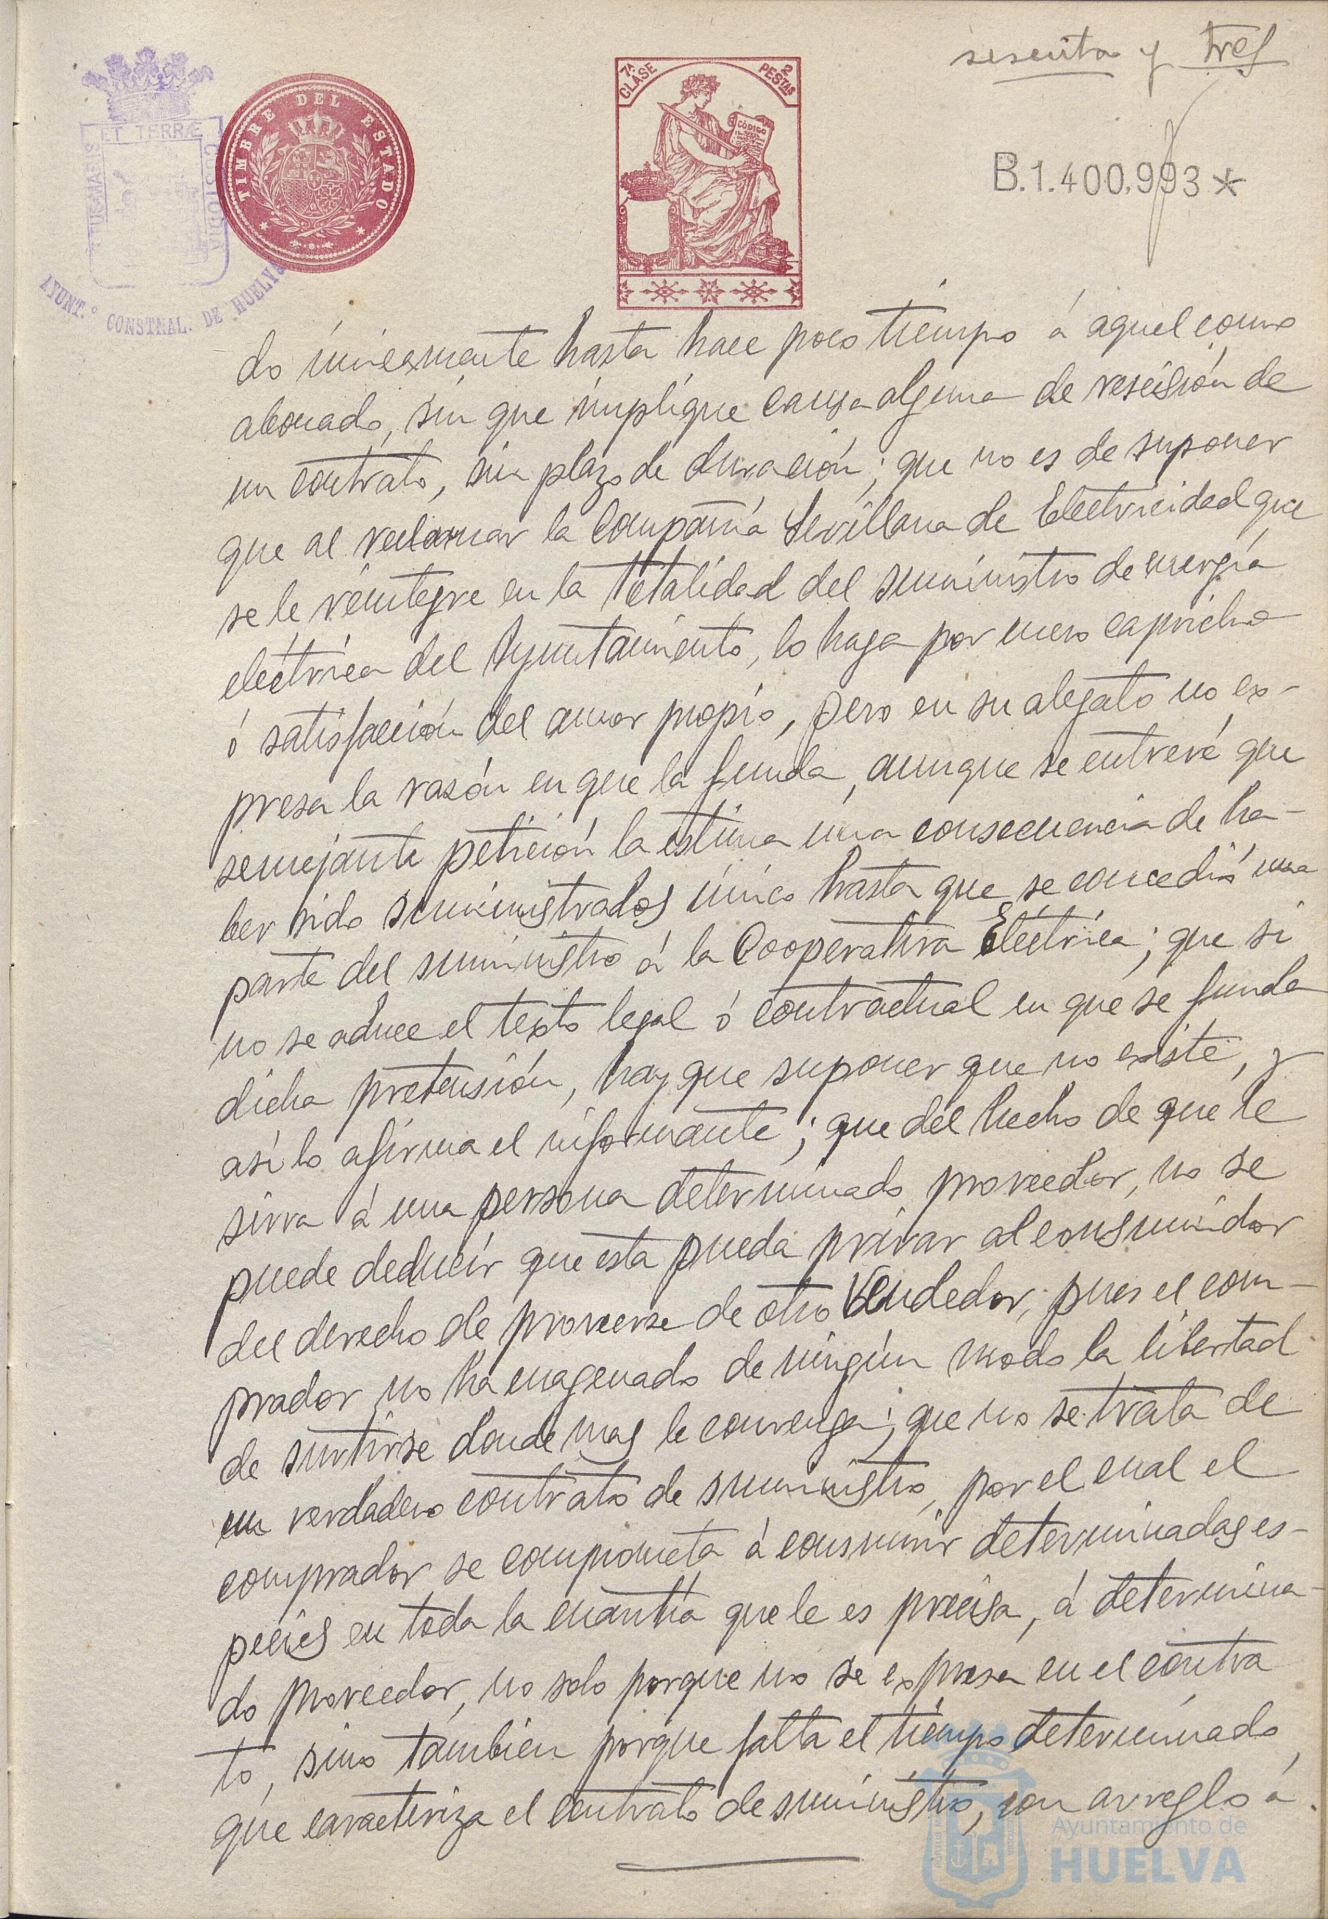 sesenta y tres
7ª CLASE
2 PESTAS
CÓDIGO
TIMBRE DEL ESTADO
ET TERRÆ
CUSTODIA
AYUNT.º CONSTNAL. DE HUELVA
B.1.400.993*
do únicamente hasta hace poco tiempo á aquel como
abonado, sin que implique causa alguna de rescisión de
un contrato, sin plazo de duración; que no es de suponer
que al reclamar la Compañía Sevillana de Electricidad que
se le reintegre en la totalidad del suministro de energía
eléctrica del Ayuntamiento, lo haga por mero capricho
ó satisfacción del amor propio, pero en su alegato no ex-
presa la razón en que la funda, aunque se entrevé que
semejante petición la estima una consecuencia de ha-
ber sido suministrados único hasta que se concedió una
parte del suministro á la Cooperativa Eléctrica; que si
no se aduce el texto legal ó contractual en que se funda
dicha pretensión, hay que suponer que no existe, y
así lo afirma el informante; que del hecho de que le
sirva á una persona determinado proveedor, no se
puede deducir que esta pueda privar al consumidor
del derecho de proveerse de otro vendedor, pues el com-
prador no ha enagenado de ningún modo la libertad
de surtirse donde mas le convenga; que no se trata de
un verdadero contrato de suministro, por el cual el
comprador se comprometa á consumir determinadas es-
pecies en toda la cuantía que le es precisa, á determina-
do proveedor, no solo porque no se expresa en el contra
to, sino tambien porque falta el tiempo determinado,
que caracteriza el contrato de suministro, con arreglo á
Ayuntamiento de
HUELVA